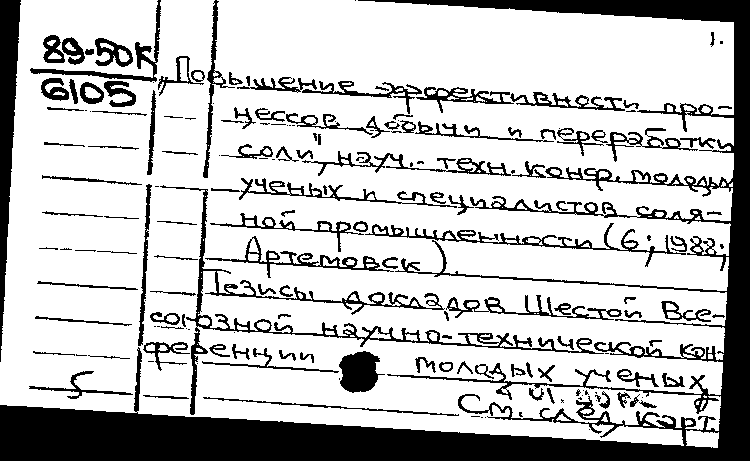 1.
89-50К
6105
„Повышение эффективности про-
цессов добычи и переработки
соли", науч.- техн. конф. молодых
ученых и специалистов соля-
ной промышленности (6; 1988;
Артемовск).
Тезисы докладов Шестой Все-
союзной научно-технической кон-
ференции молодых ученых
5
См. след. карт.